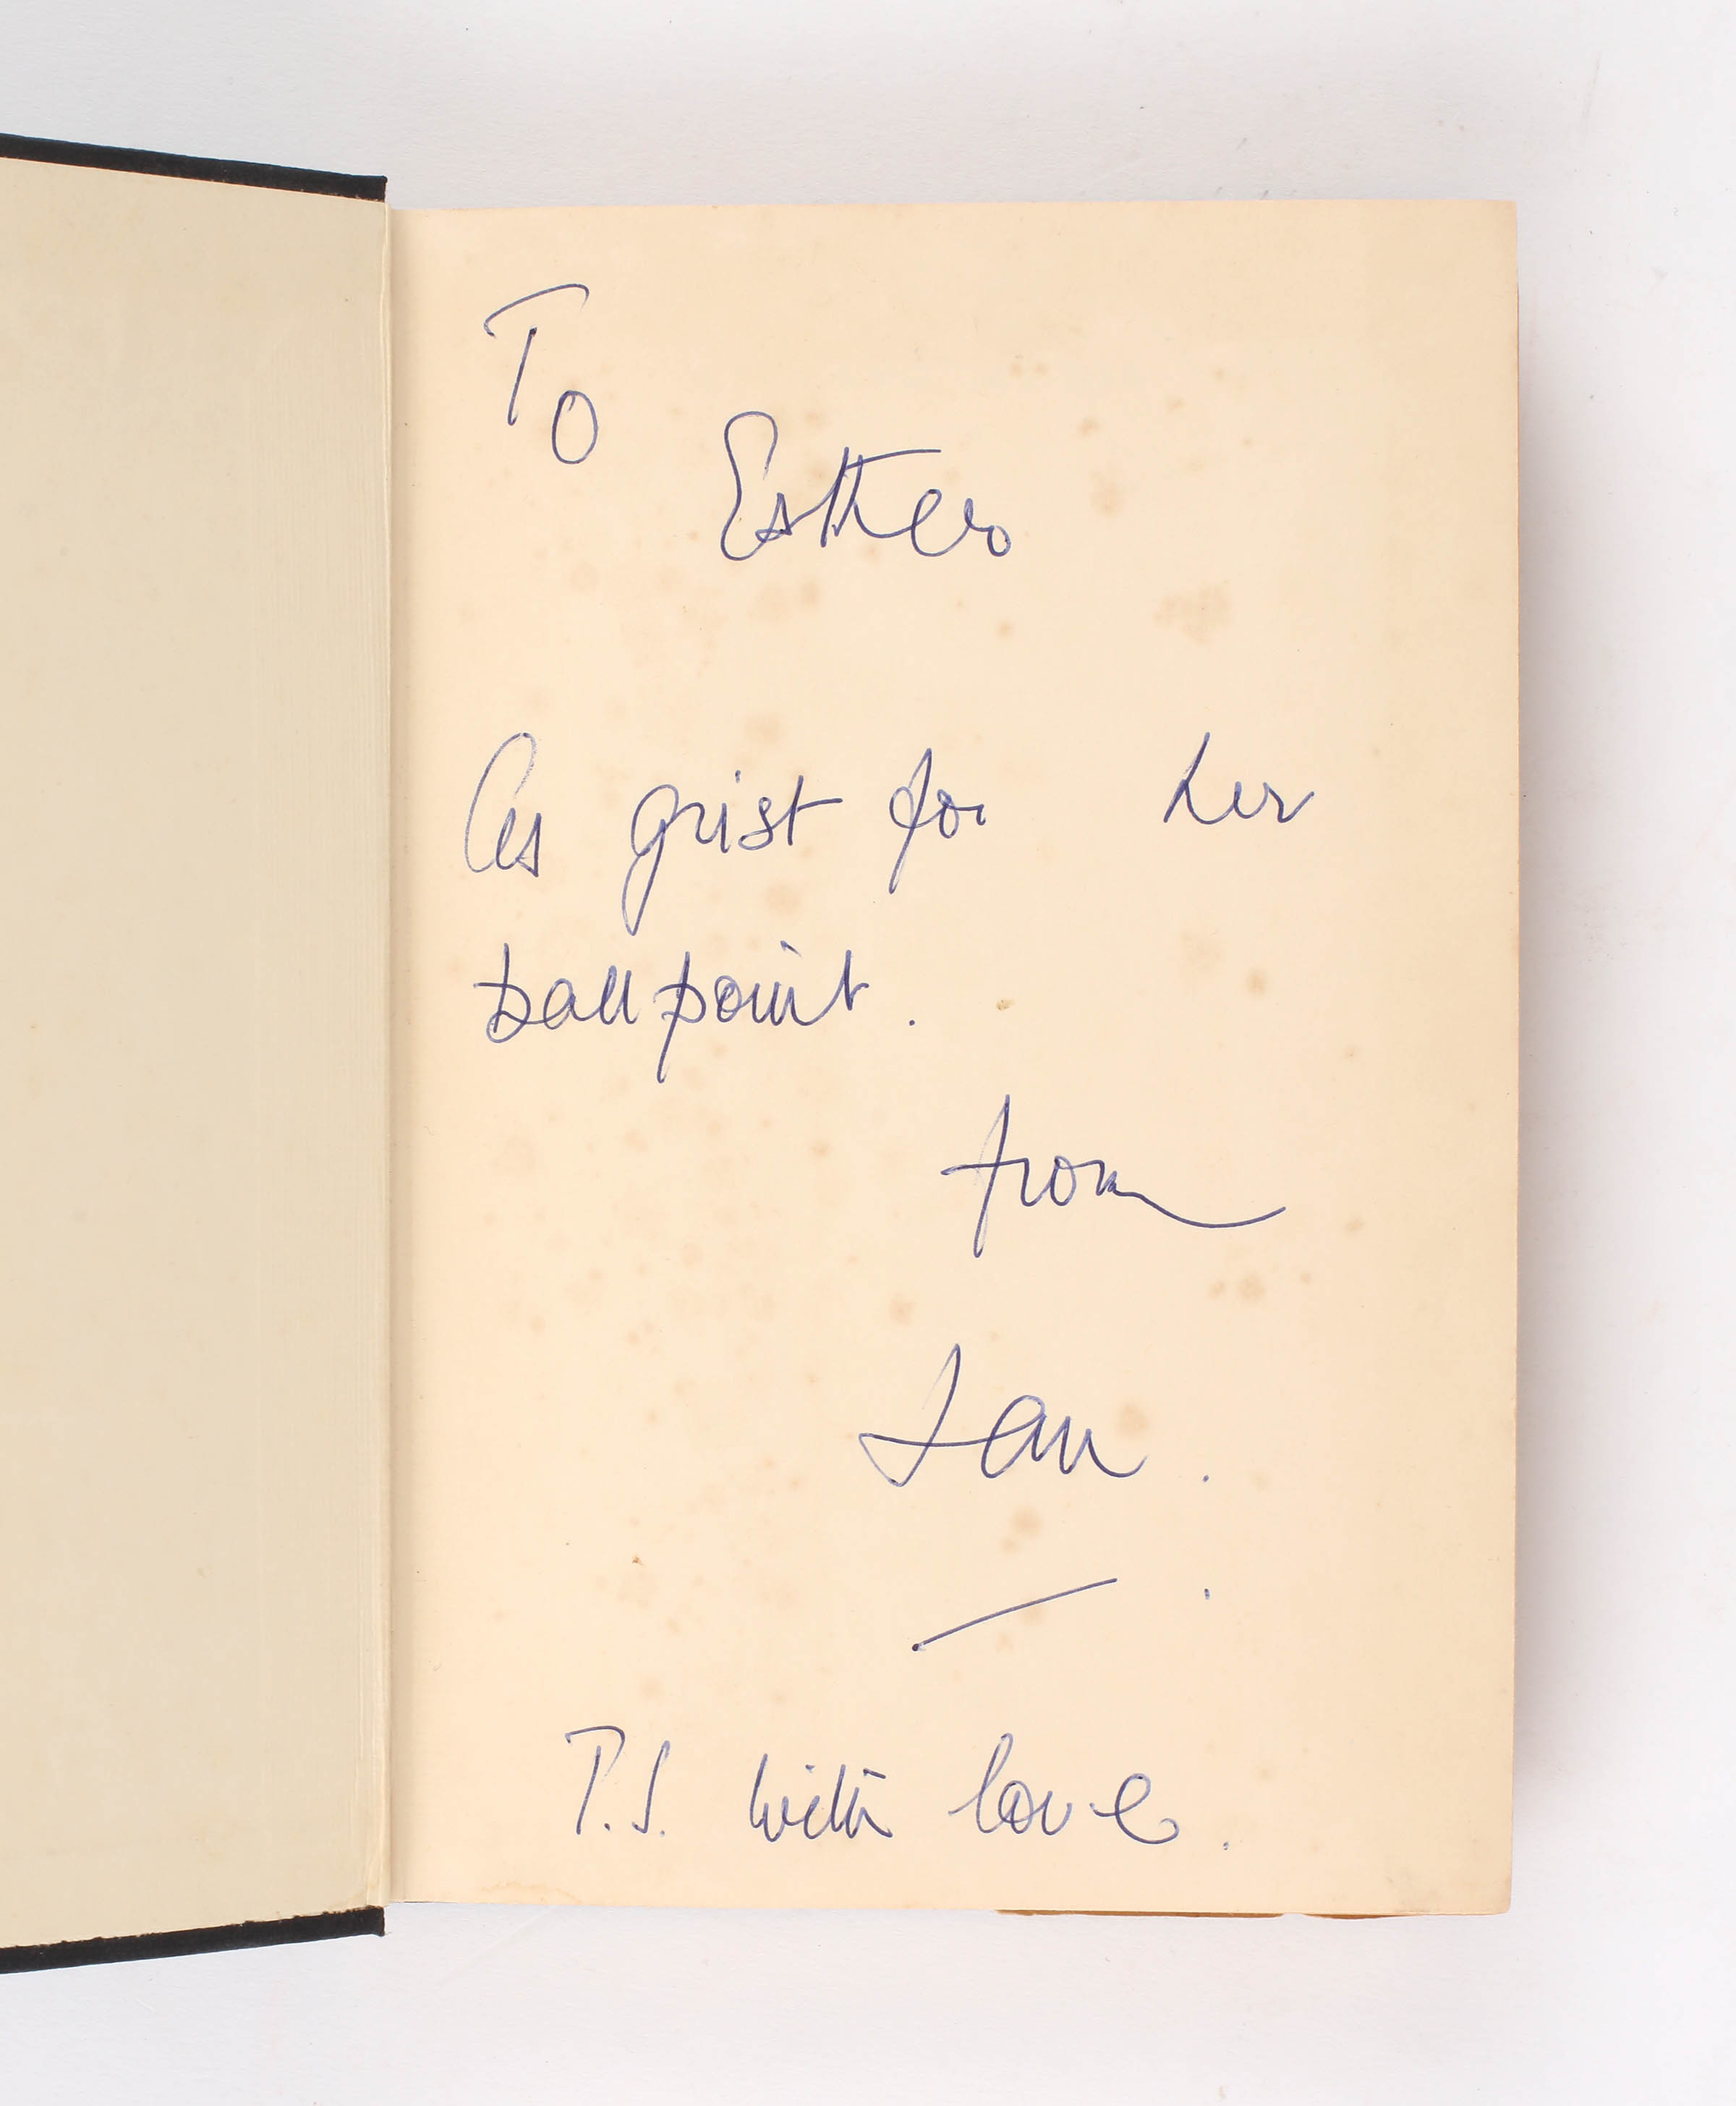 To
Esther
As grist for her
ballpoint.
from
Ian.
P.S. with love.